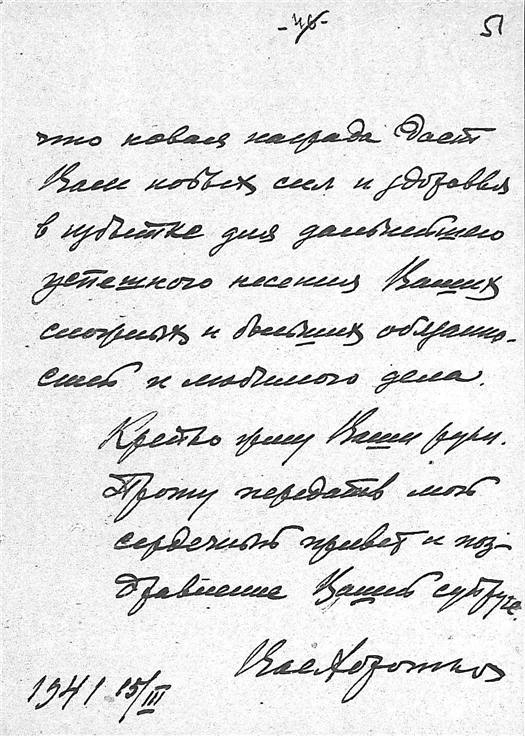 -46- 51
что новая награда даст
Вам новых сил и здоровья
в избытке для дальнейшего
успешного несения Ваших
сложных и больших обязанно-
стей и любимого дела.
Крепко жму Ваши руки.
Прошу передать мой
сердечный привет и поз-
дравление Вашей супруге.
1941 15/III